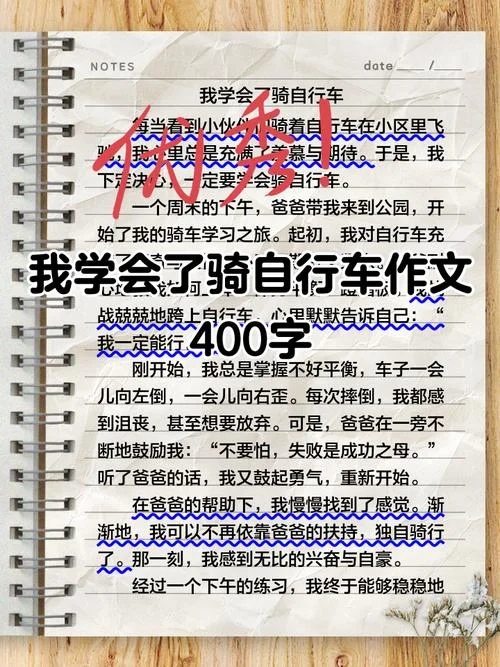 NOTES
date ___ / ___
我学会了骑自行车
每当看到小伙伴们骑着自行车在小区里飞
驰，我心里总是充满了羡慕与期待。于是，我
下定决心，一定要学会骑自行车。
优秀！
一个周末的下午，爸爸带我来到公园，开
始了我的骑车学习之旅。起初，我对自行车充
我学会了骑自行车作文
400字
战兢兢地跨上自行车，心里默默告诉自己：“
我一定能行
刚开始，我总是掌握不好平衡，车子一会
儿向左倒，一会儿向右歪。每次摔倒，我都感
到沮丧，甚至想要放弃。可是，爸爸在一旁不
断地鼓励我：“不要怕，失败是成功之母。”
听了爸爸的话，我又鼓起勇气，重新开始。
在爸爸的帮助下，我慢慢找到了感觉。渐
渐地，我可以不再依靠爸爸的扶持，独自骑行
了。那一刻，我感到无比的兴奋与自豪。
经过一个下午的练习，我终于能够稳稳地